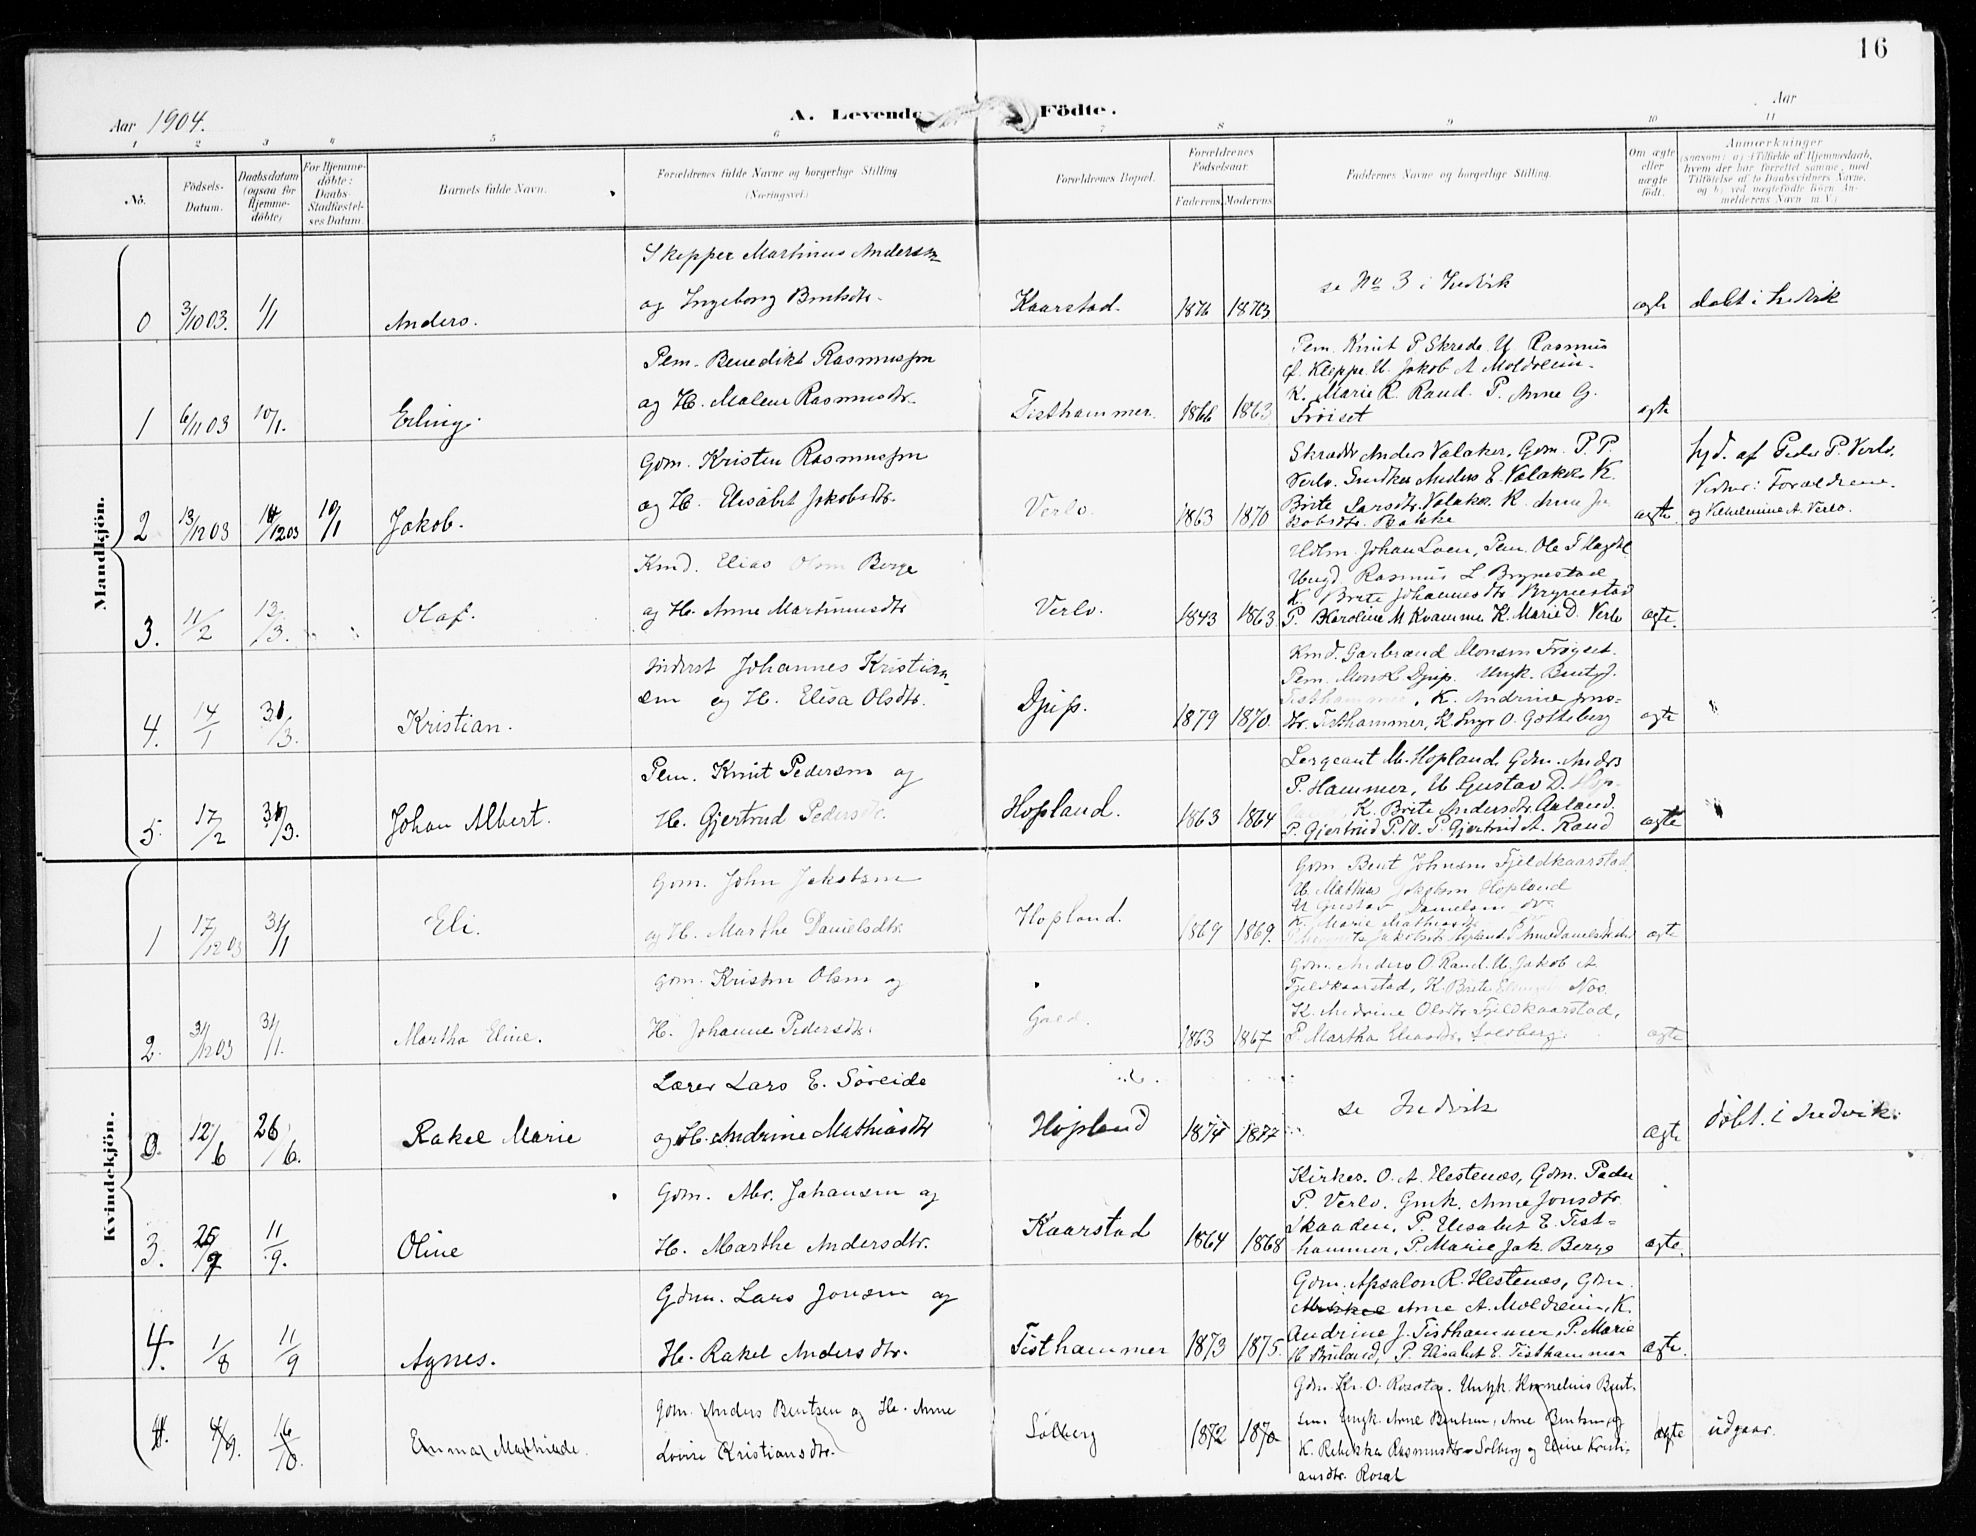 16
Aar 1904.
A. Levende Födte.
Aar
1 2 3 4 5 6 7 8 9 10 11
No.
Födsels-Datum.
Daabsdatum (ogsaa for Hjemmedöbte)
For Hjemmedöbte: Daabs-Stadfæstelses Datum.
Barnets fulde Navn.
Forældrenes fulde Navne og borgerlige Stilling (Næringsvei)
Forældrenes Bopæl.
Forældrenes Fødselsaar.
Faderens Moderens.
Faddernes Navne og borgerlige Stilling.
Om ægte eller uægte födt.
Anmærkninger
(saasom: a) i Tilfælde af Hjemmedaab,
hvem der har forrettet samme, med
Tilföielse af to Daabsvidners Navne,
og b) ved uægtefödte Börn An-
melderens Navn m. V.)
Mandkjön.
Skipper Martinus Andersen
og Ingeborg Bentsdtr.
0 3/10 03. 1/1 Anders. Kaarstad. 1873 se No 3 i Indvik ægte döbt i Indvik
Pem. Benedikt Rasmussen
og H. Malene Rasmusdtr.
1 6/11 03 10/1. Erling. Tisthammer. 1866 1863 ægte
Pem. Knut P Skrede U Rasmus
Kleppe. U. Jakob A Moldreim.
K. Marie R. Rand. P. Anne G.
Fröiset
Gdm. Kristen Rasmussen
og H. Elisabet Jakobsdtr.
2 13/12 03 /12 03 10/1 Jakob. Verlo. 1863 1870 ægte
Skrædder Anders Valaker, Gdm. P. P.
Verlo. Anders E. Valaker. K.
Brite Larsdtr. Valaker. K. Anne Ja
kobsdtr. Bakke
hjd. af Peder P. Verlo.
Vidner: Forældrene
og Vilhelmine A. Verlo.
Kmd. Elias Olsen Berge
og H. Anne Martinusdtr
3. 11/2 13/3. Olaf. Verlo. 1843 1863. ægte.
Johan Loen, Pem. Ole
Ungd Rasmus L Brynestad
K Brite Johannesdtr Brynestad
P. Karoline M Kvamme K. Marie D. Verlo
Inderst Johannes Kristian-
sen og H. Elisa Olsdtr.
4. 14/1 31/3. Kristian. Djup. 1879 1870. ægte "
Kmd. Garbrand Monsen Fröyset.
Pem. Djup. Ungk. Bent J.
Tisthammer, K. Andrine Jons-
dtr. Tisthammer, K. O. Gotteberg
Pem. Knut Pedersen og
H. Gjertrud Pedersdtr.
5. 17/2 31/3. Johan Albert. Hopland. 1863 1864 ægte "
Sergeant M. Hopland. Gdm. Anders
P. Hammer, U Gustav D. Hop-
K. Brite Andersdtr Aaland.
P. Gjertrud P. P. Gjertrud A. Rand
Kvindekjön.
Gdm. John Jakobsen
og H. Marthe Danielsdtr.
1 17/12 03 31/1 Eli. Hopland. 1869 1869. ægte
Gdm. Bent Johnsen Fjeldkaarstad
U. Mathias Jakobsen Hopland
U Gustav Danielsen do
K. Marie Mathiasdtr
Gdm. Kristen Olsen og
H. Johanne Pedersdtr.
2. 31/12 03 31/1. Martha Eline. 1863 1867 ægte
Gdm. Anders O Rand. U. Jakob A
Fjeldkaarstad, K. Brite Nos.
K. Andrine Olsdtr Fjeldkaarstad,
P. Martha Eliasdtr. Solberg.
Lærer Lars E. Söreide
og H. Andrine Mathiasdtr
0. 12/6 26/6. Rakel Marie Hopland 1874 1877 se Indvik ægte döbt. i Indvik.
Gdm. Abr. Johansen og
H. Marthe Andersdtr.
3. 11/9. Oline Kaarstad 1864 1868 ægte.
Kirkes. O. A. Hestenæs, Gdm. Peder
P. Verlo. Gmk. Anne Jonsdtr
Skaaden, P. Elisabet E. Tist-
hammer, P. Marie Jak. Berge
Gdm. Lars Jonsen og
H. Rakel Andersdtr.
4. 1/8 11/9 Agnes. Tisthammer 1873 1875. ægte.
Gdm. Apsalon R. Hestenæs, Gdm
Arne A. Moldreim, K.
Andrine J. Tisthammer, P. Marie
Bruland, P. Elisabet E. Tisthammer
Gdm. Anders Bentsen og H. Anne
Lovise Kristiansdtr.
4. 4/9. 16/ Emma Mathilde. Solberg 1872 1870 ægte udgaar.
Gdm. Kr. O. Ungk. Kornelius Bent-
sen Ungk. Arne Bentsen, Arne Bentsen og
K. Rebekka Rasmusdtr Solberg og Eline Kristi-
ansdtr. Rosæt